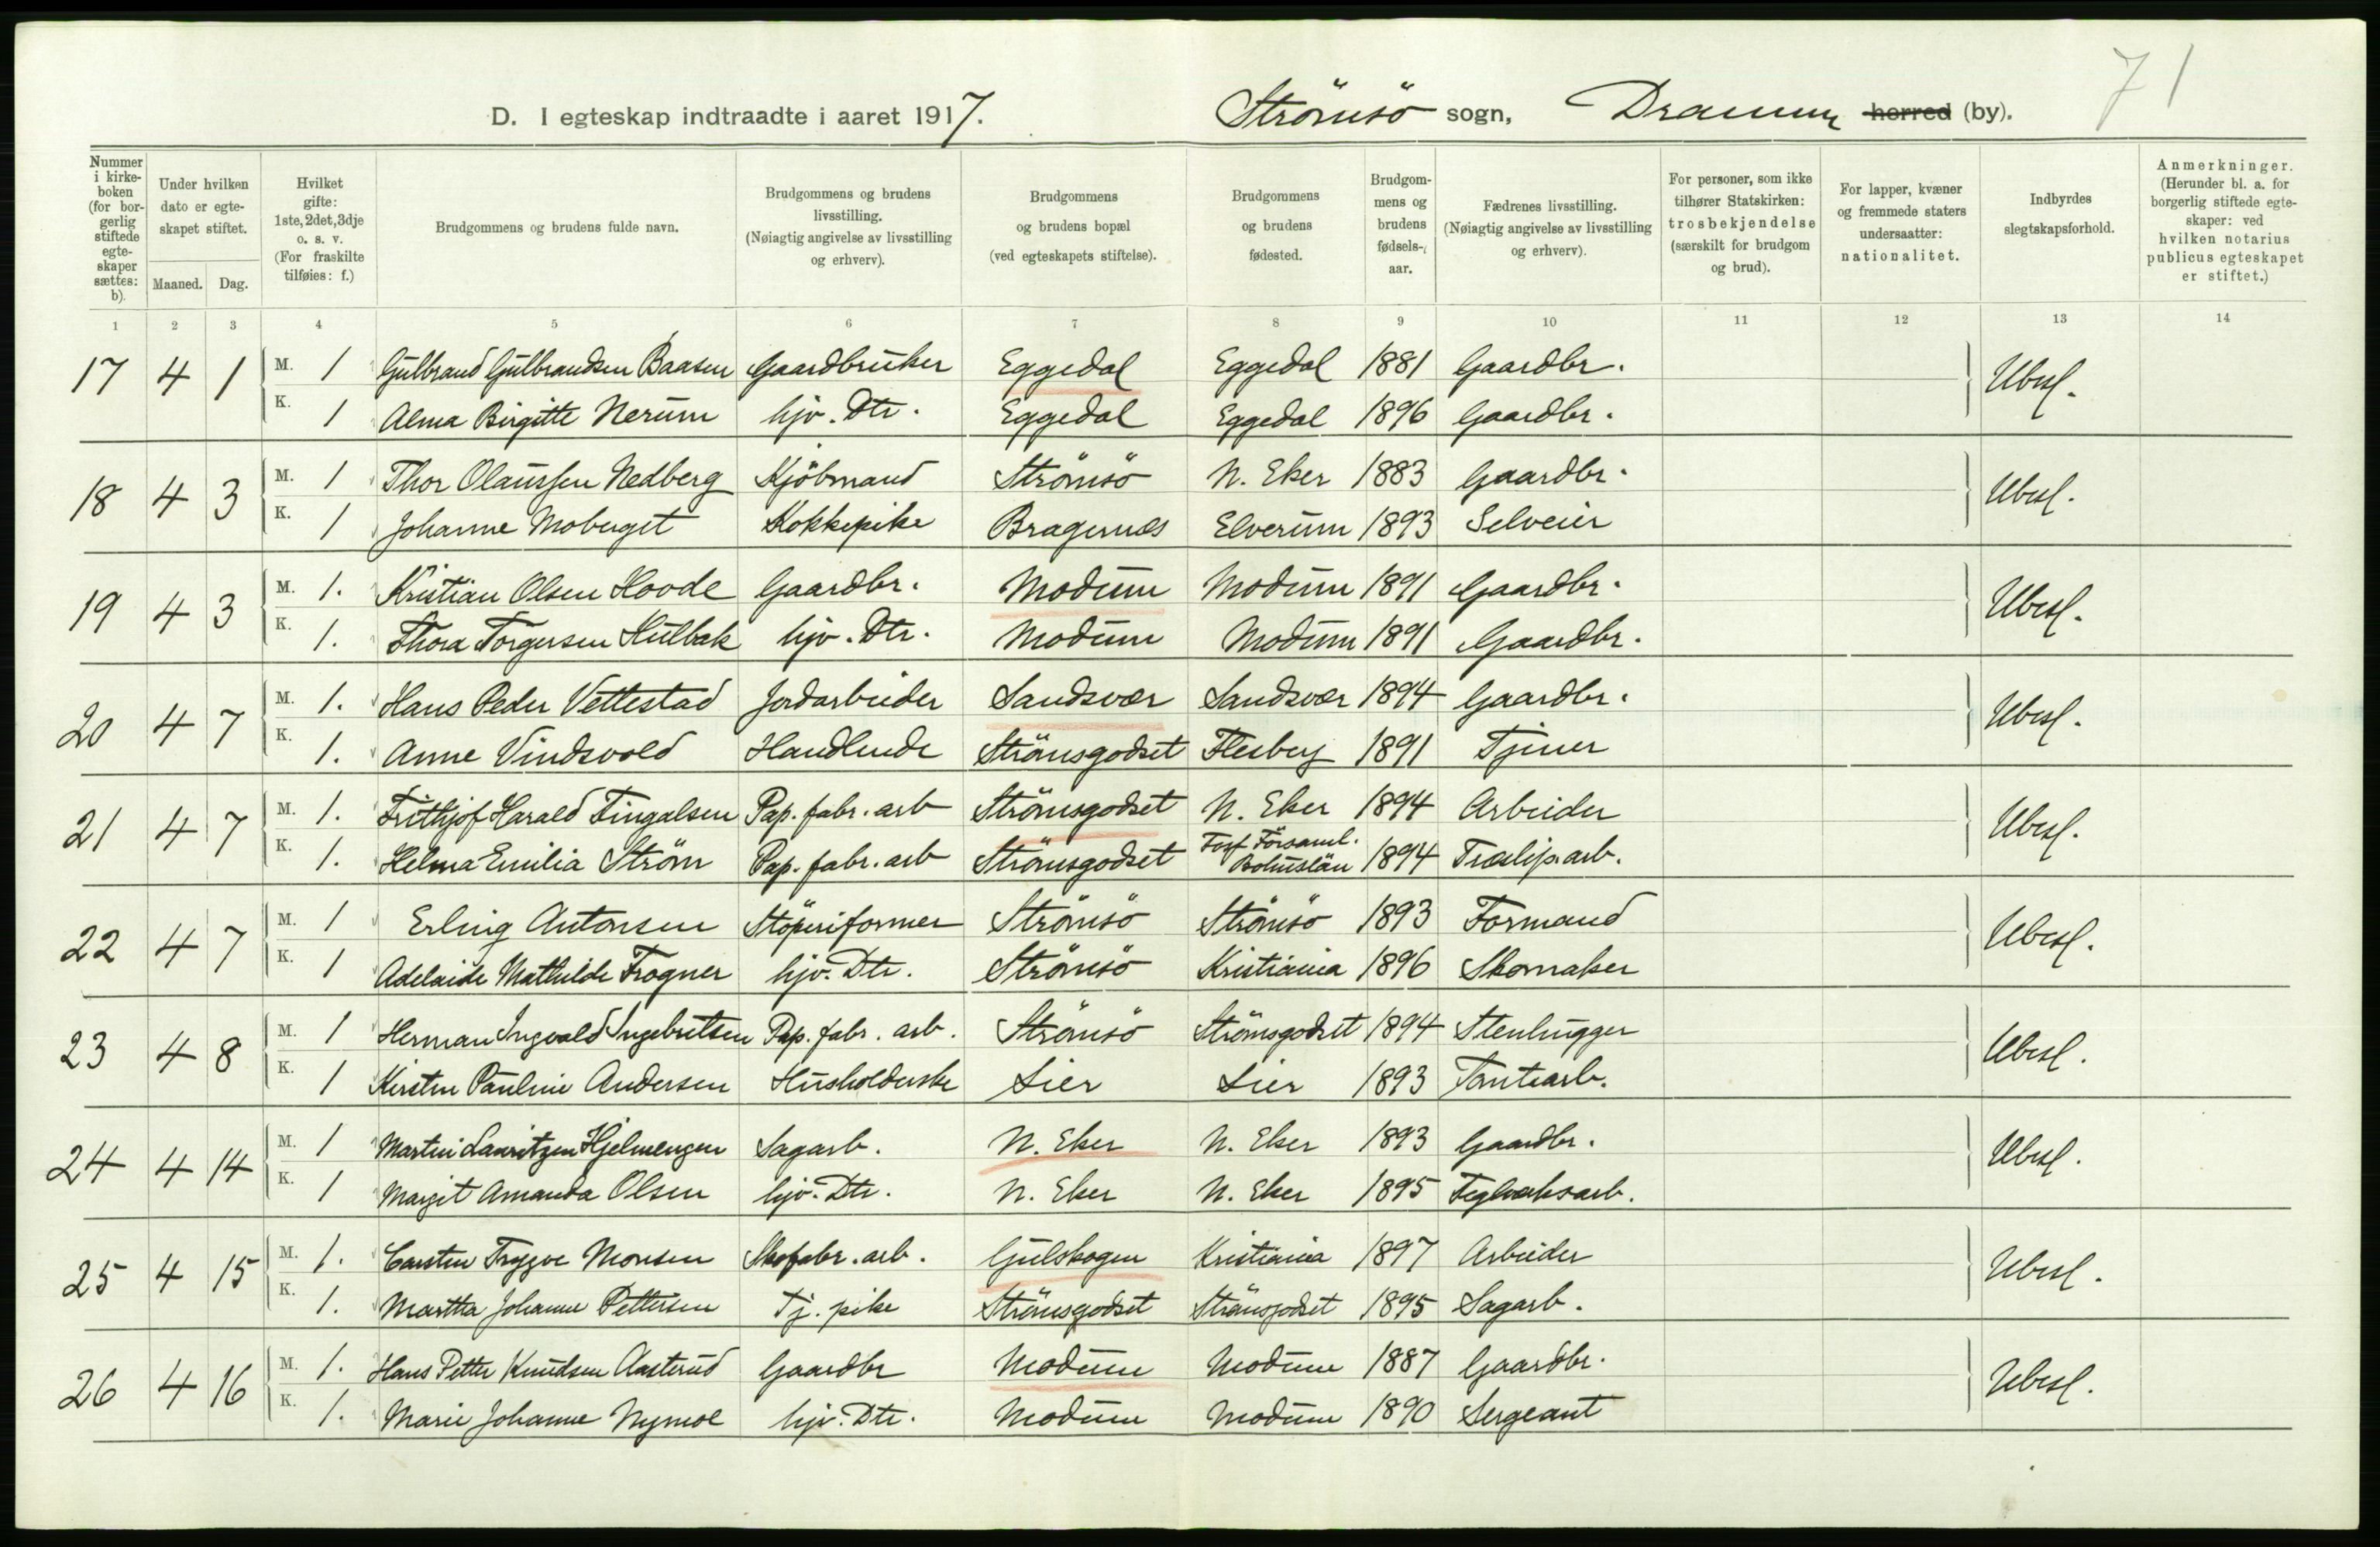 71
D. I egteskap indtraadte i aaret 1917. Strömsö sogn, Drammen herred (by).
Nummer i kirkeboken (for borgerlig stiftede egteskaper sættes: b). Under hvilken dato er egteskapet stiftet. Maaned. Dag. Hvilket gifte: 1ste, 2det, 3dje o. s. v. (For fraskilte tilføies: f.) Brudgommens og brudens fulde navn. Brudgommens og brudens livsstilling. (Nøiagtig angivelse av livsstilling og erhverv). Brudgommens og brudens bopæl (ved egteskapets stiftelse). Brudgommens og brudens fødested. Brudgommens og brudens fødselsaar. Fædrenes livsstilling. (Nøiagtig angivelse av livsstilling og erhverv). For personer, som ikke tilhører Statskirken: trosbekjendelse (særskilt for brudgom og brud). For lapper, kvæner og fremmede staters undersaatter: nationalitet. Indbyrdes slegtskapsforhold. Anmerkninger. (Herunder bl. a. for borgerlig stiftede egteskaper: ved hvilken notarius publicus egteskapet er stiftet.)
1 2 3 4 5 6 7 8 9 10 11 12 13 14
17 4 1 M. 1 Gulbrand Gulbrandsen Baasen Gaardbruker Eggedal Eggedal 1881 Gaardbr. Ubesl.
K. 1 Alma Birgitte Nerum hjv. Dtr. Eggedal Eggedal 1896 Gaardbr.
18 4 3 M. 1 Thor Olaussen Nedberg Kjöbmand Strömsö N. Eker 1883 Gaardbr. Ubesl.
K. 1 Johanne Mobuget Kokkepike Bragernæs Elverum 1893 Selveier
19 4 3 M. 1. Kristian Olsen Hovde Gaardbr. Modum Modum 1891 Gaardbr. Ubesl.
K. 1. Thora Torgersen Hulbak hjv. Dtr. Modum Modum 1891 Gaardbr.
20 4 7 M. 1. Hans Peder Vettestad Jordarbeider Sandsvær Sandsvær 1894 Gaardbr. Ubesl.
K. 1. Anne Vindsvold Handlende Strömsgodset Flesberg 1891 Tjener
21 4 7 M. 1. Frithjof Harald Fingalsen Pap. fabr. arb Strömsgodset N. Eker 1894 Arbeider Ubesl.
K. 1. Helma Emilia Strøm Pap. fabr. arb Strömsgodset Församl. Bohuslän 1894 Træslip.arb.
22 4 7 M. 1 Erling Antonsen Stöperiformer Strömsö Strömsö 1893 Formand Ubesl.
K. 1 Adelaide Mathilde Frogner hjv. Dtr. Strömsö Kristiania 1896 Skomaker
23 4 8 M. 1 Herman Ingvald Ingebretsen Pap. fabr. arb. Strömsö Strömsgodset 1894 Stenhugger Ubesl.
K. 1 Kirsten Pauline Andersen Husholderske Lier Lier 1893 Tomtearb.
24 4 14 M. 1 Martin Lauritzen Hjelmengen Sagarb. N. Eker N. Eker 1893 Gaardbr. Ubesl.
K. 1 Margit Amanda Olsen hjv. Dtr. N. Eker N. Eker 1895 Teglverksarb.
25 4 15 M. 1. Carsten Tryggve Monsen Skofabr. arb. Gulskogen Kristiania 1897 Arbeider Ubesl.
K. 1. Martha Johanne Pettersen Tj. pike Strömsgodset Strömsgodset 1895 Sagarb.
26 4 16 M. 1. Hans Petter Knudsen Aasterud Gaardbr Modum Modum 1887 Gaardbr. Ubesl.
K. 1. Marie Johanne Nymoe hjv. Dtr. Modum Modum 1890 Sergeant